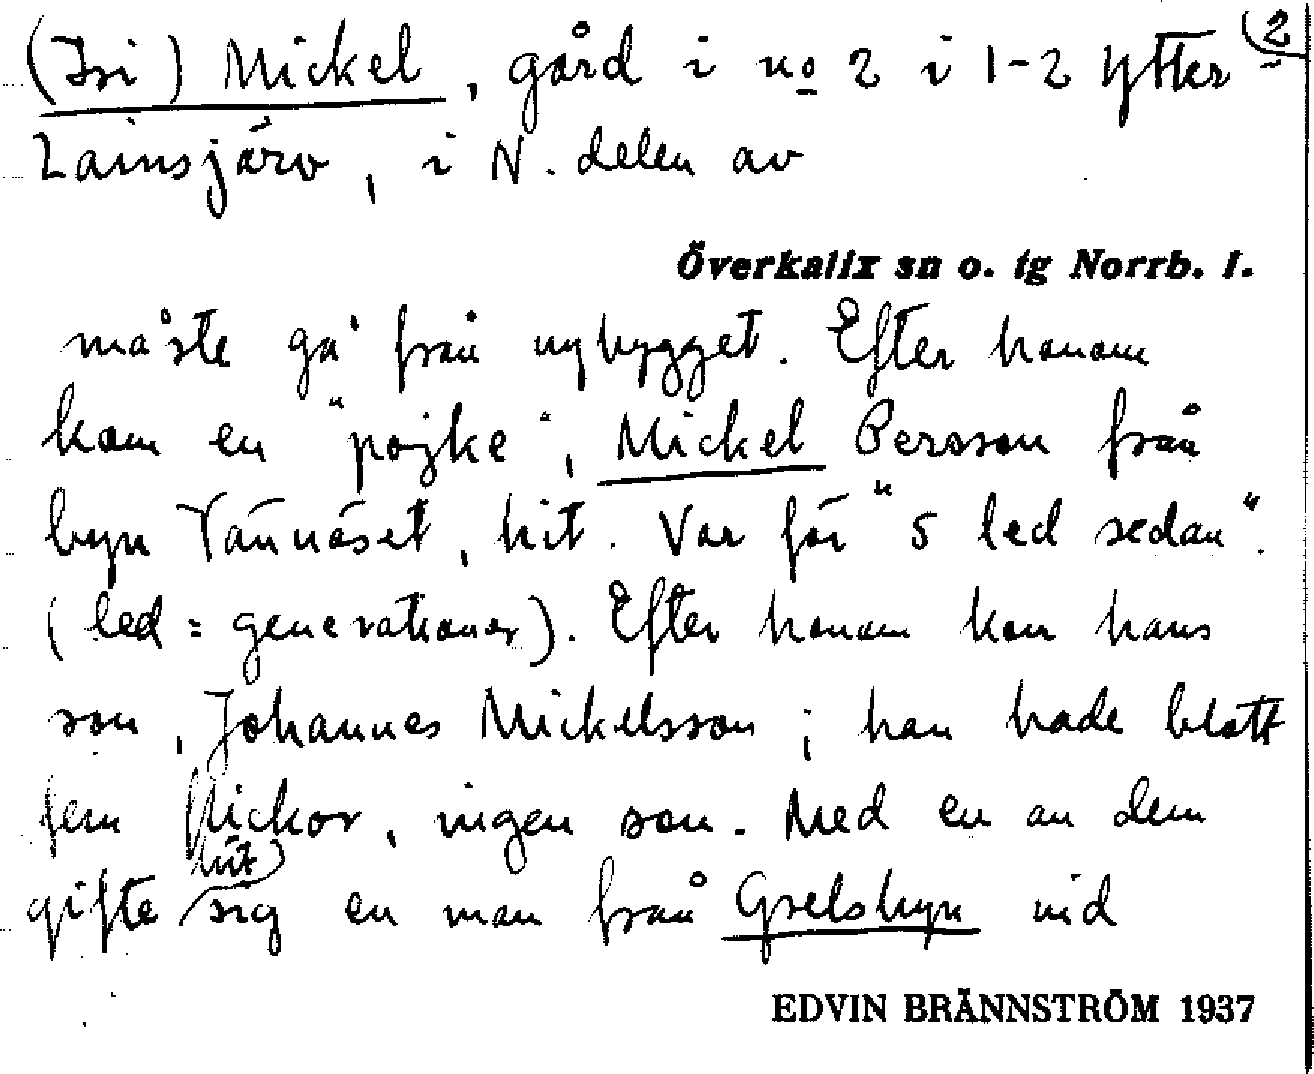 (2
(Isi) Mickel, gård i no 2 i 1-2 Ytter
Lainsjärv, i N. delen av
Överkalix sn o. tg Norrb. l.
måste gå från nybygget. Efter honom
kom en "pojke", Mickel Persson från
byn Vännäset, hit. Var för "5 led sedan".
(led = generationer). Efter honom kom hans
son, Johannes Mickelsson; han hade blott
fem flickor, ingen son. Med en av dem
gifte sig (hit) en man från Grelsbyn vid
EDVIN BRÄNNSTRÖM 1937